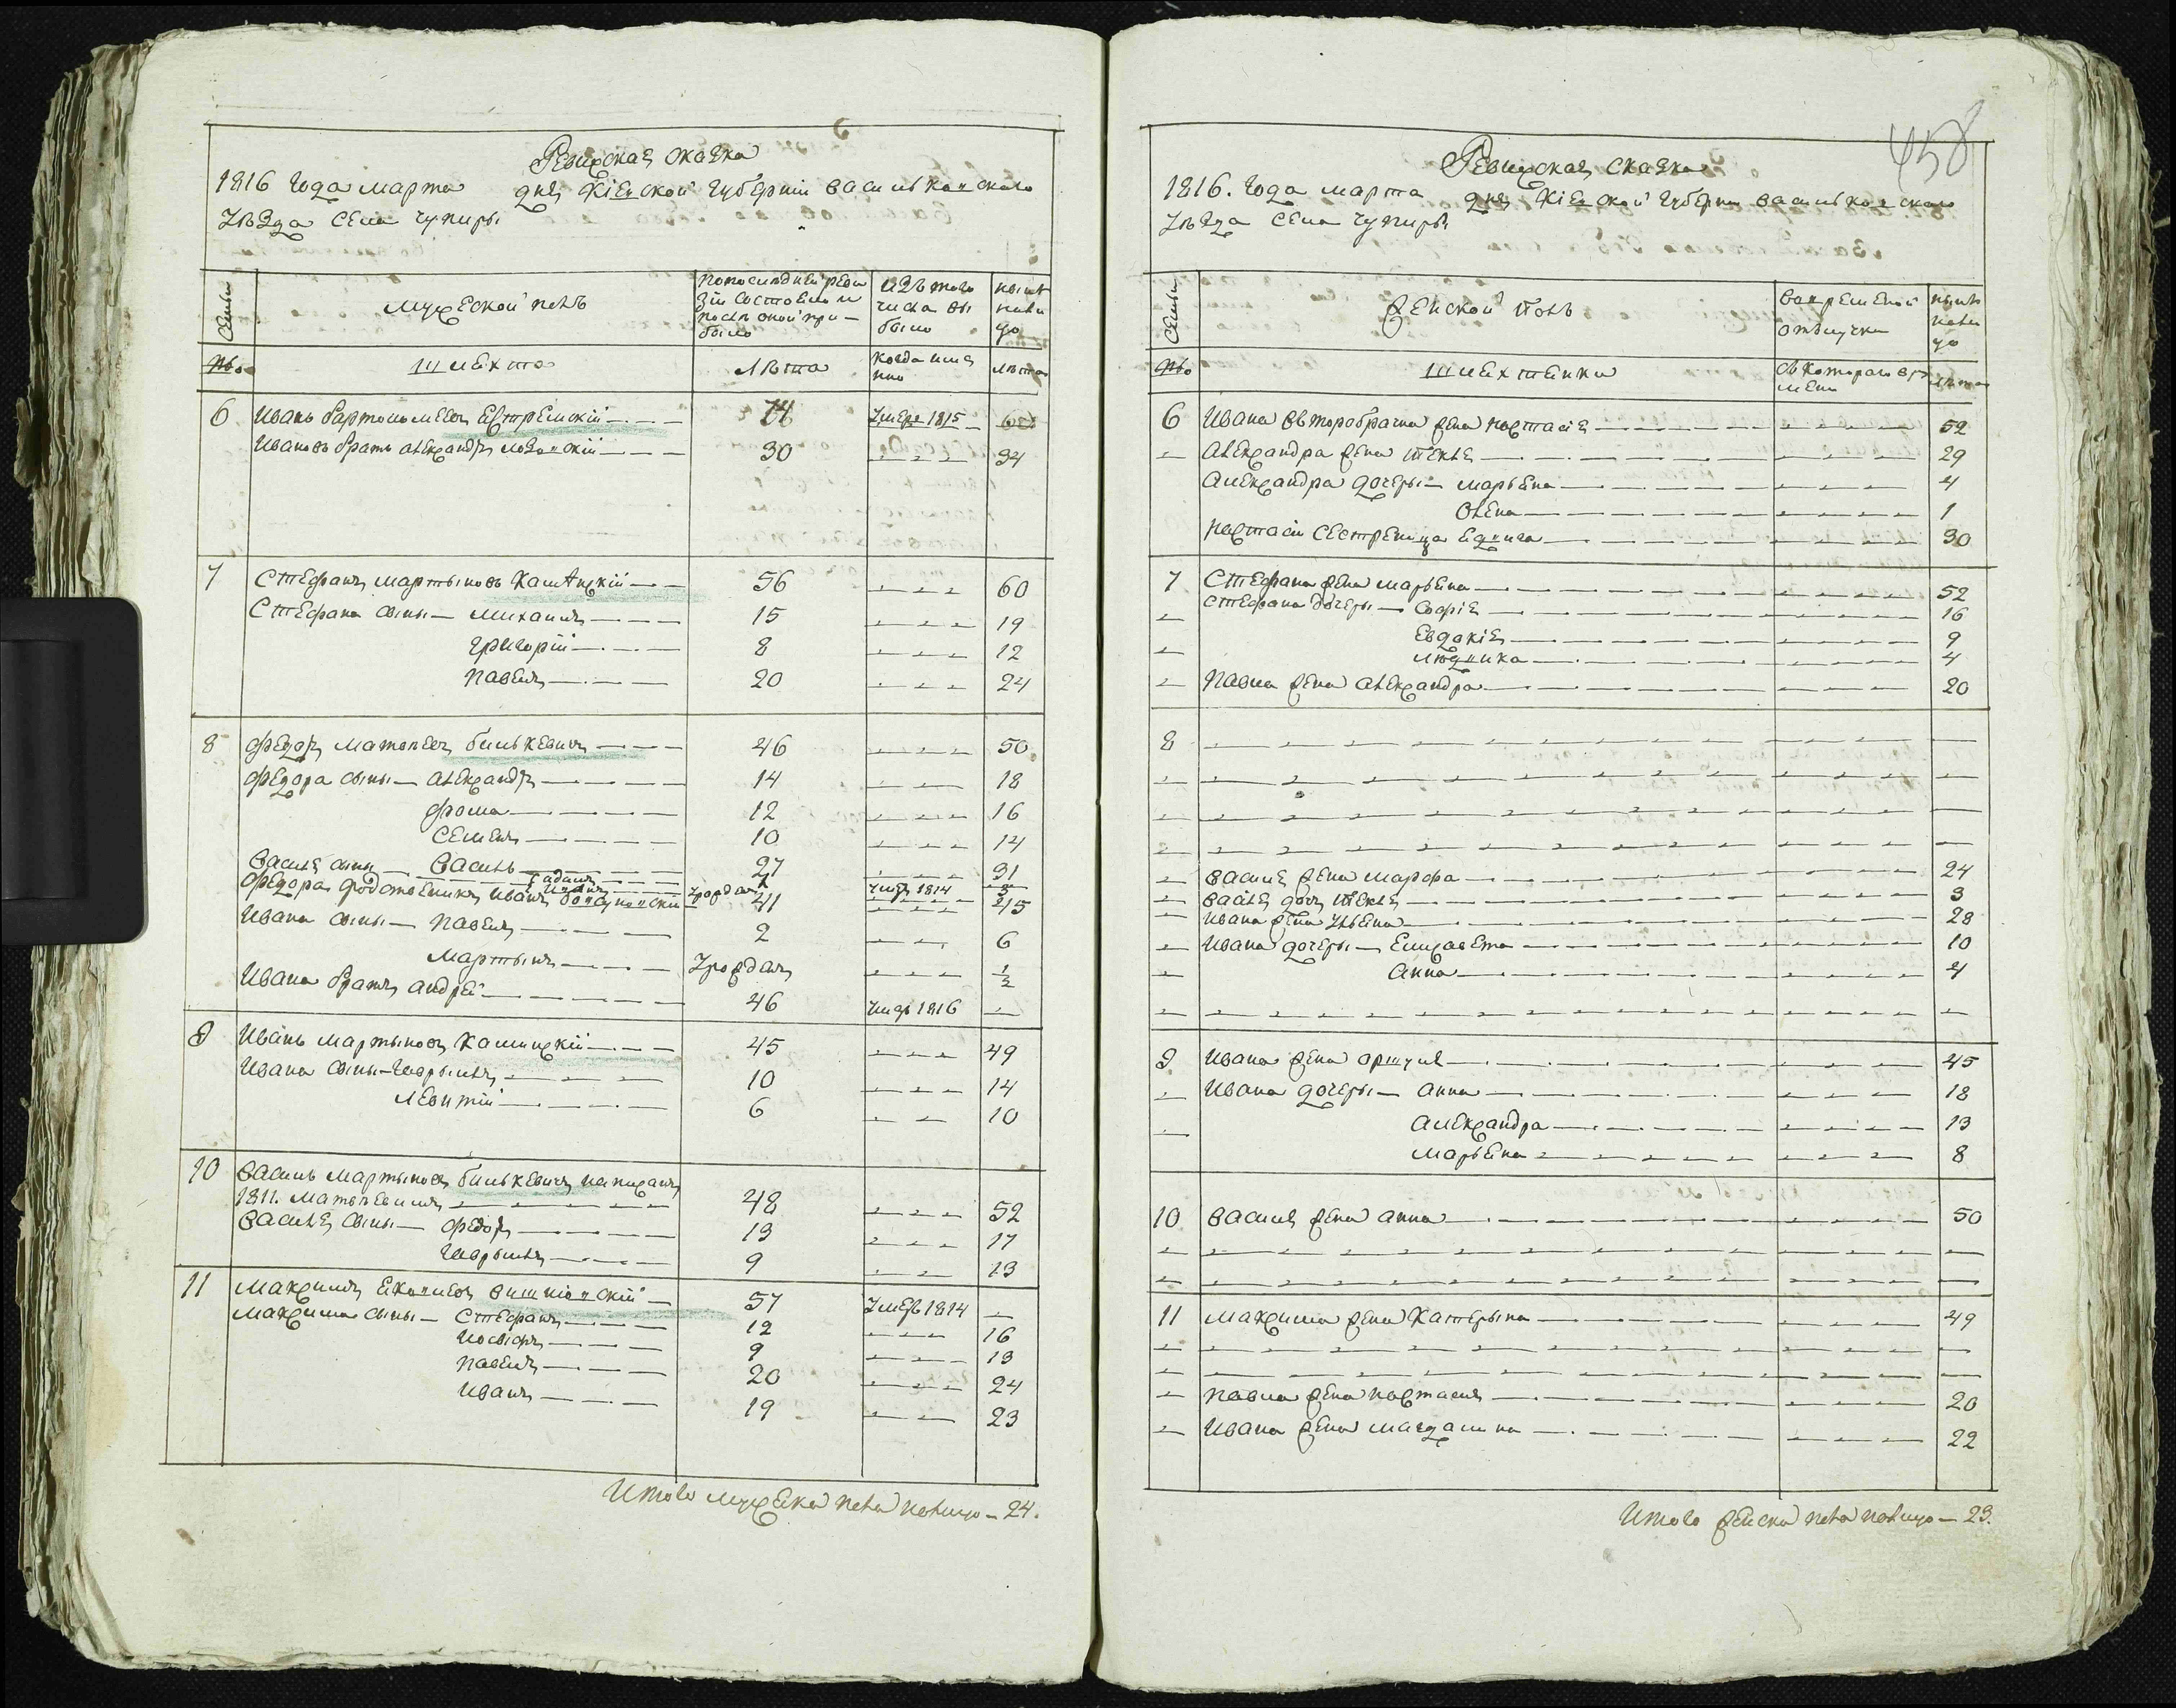 6
Ревижская сказка
1816 года марта дня Кіевской губерніи васильковского
уѣзда села чупиры
Семьи
мужеской полъ
по последней реви
зіи состояло и
послѣ оной при-
было
изъ того
числа вы
было
нынѣ
нали
цо
№о
шляхта
лѣта
когда имя
нно
лѣта
6 Иванъ бартоломеевъ 74 умеръ 1815
Ивановъ братъ александръ 30 34
7 Стефанъ мартыновъ каминскій 56 60
Стефана сыны Михаилъ 15 19
григорій 8 12
павелъ 20 24
8 федоръ матвеевъ билькевичъ 46 50
федора сыны александръ 14 18
фома 12 16
семенъ 10 14
василь 27 31
василя сыны адамъ умеръ 1814
федора родственикъ иванъ 41 45
Ивана сыны павелъ 2 6
мартынъ урожданъ 1/2
Ивана братъ андрей 46 умеръ 1816
9 Иванъ мартыновъ каминскій 45 49
Ивана сыны гаврылъ 10 14
леонтій 6 10
10 василь мартыновъ билькевичъ написанъ
1811. матвѣевичъ 48 52
василя сыны федоръ 13 17
гаврылъ 9 13
11 максимъ вишніовскій 57 умеръ 1814
максима сыны Стефанъ 12 16
иосифъ 9 13
павелъ 20 24
иванъ 19 23
Итого мужеска пола налицо - 24.
458
Ревижская сказка
1816. года марта дня Кіевской губерни васильковского
уѣзда села чупиры
Семьи
женской полъ
во временной
отлучки
нынѣ
нали
цо
№о
шляхтянки
съ котораго вре
мени
лѣта
6 Ивана второбрачна жена настасія 52
александра жена текля 29
александра дочеры марьяна 4
олена 1
настасіи сестреница 30
7 Стефана жена марьяна 52
Стефана дочеры софія 16
евдокія 9
людвика 4
павла жена александра 20
8
василя жена марфа 24
василя дочь текля 3
ивана жена ульяна 28
ивана дочеры елизавета 10
анна 4
9 ивана жена оршуля 45
ивана дочеры анна 18
александра 13
марьяна 8
10 василя жена анна 50
11 максима жена катерына 49
павла жена настасія 20
ивана жена магдалина 22
Итого женска пола налицо - 23.